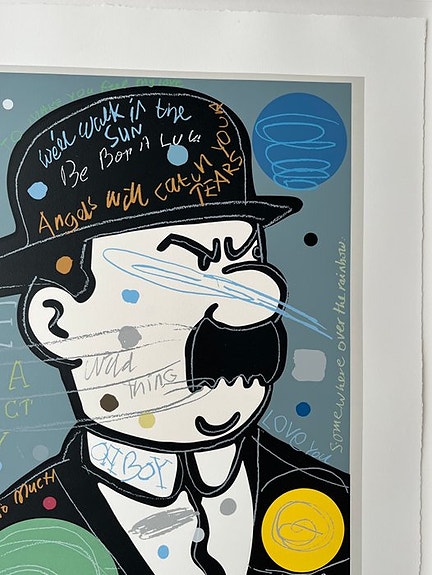 we'll walk in the
SUN
Be Bop A Lula
Angels will catch your
TEARS
somewhere over the rainbow
A
CT
wild
THING
LOVE you
OH BOY
MUCH